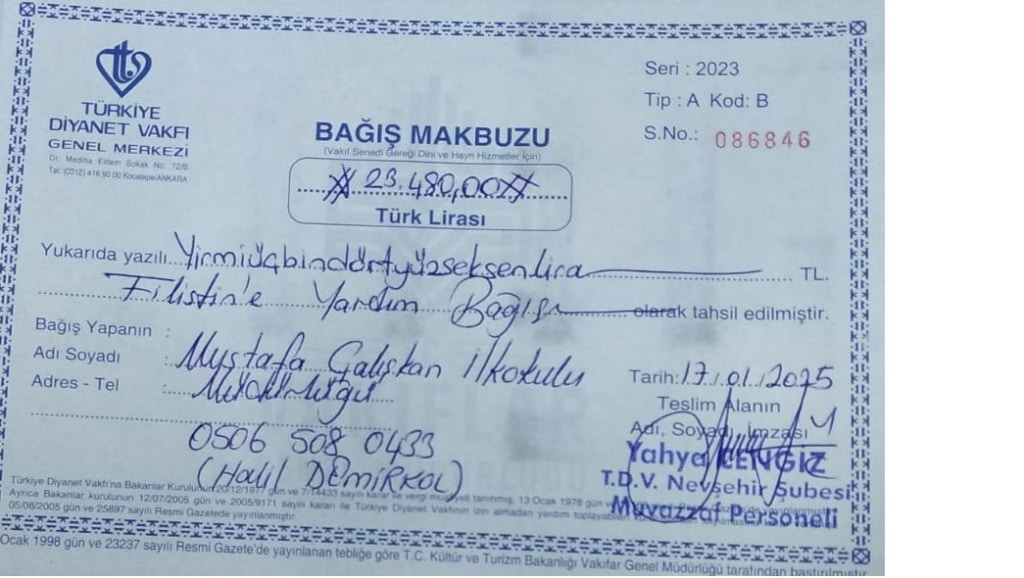 TÜRKİYE
DİYANET VAKFI
GENEL MERKEZİ
Dr. Mediha Eldem Sokak No. 72/B
Tel: (0312) 416 90 00 Kocatepe/ANKARA
Seri : 2023
Tip : A Kod: B
S.No.: 086846
BAĞIŞ MAKBUZU
(Vakıf Senedi Gereği Dini ve Hayri Hizmetler İçin)
23.480,00
Türk Lirası
Yukarıda yazılı Yirmiüçbindörtyüzseksenlira TL.
Filistin'e Yardım Bağışı olarak tahsil edilmiştir.
Bağış Yapanın :
Adı Soyadı : Mustafa Çalışkan İlkokulu
Adres - Tel : Müdürlüğü
0506 508 0433
(Halil DEMİRKOL)
Tarih: 17/01/2025
Teslim Alanın
Adı, Soyadı, İmzası
Yahya CENGİZ
T.D.V. Nevşehir Şubesi
Muvazzaf Personeli
Türkiye Diyanet Vakfı'na Bakanlar Kurulunun 20/12/1977 gün ve 7/14433 sayılı karar ile vergi muafiyeti tanınmış, 13 Ocak 1978 gün
Ayrıca Bakanlar kurulunun 12/07/2005 gün ve 2005/9171 sayılı kararı ile Türkiye Diyanet Vakfının izin almadan yardım toplayabilen
05/08/2005 gün ve 25897 sayılı Resmi Gazetede yayınlanmıştır.
Ocak 1998 gün ve 23237 sayılı Resmi Gazete'de yayınlanan tebliğe göre T.C. Kültür ve Turizm Bakanlığı Vakıflar Genel Müdürlüğü tarafından bastırılmıştır